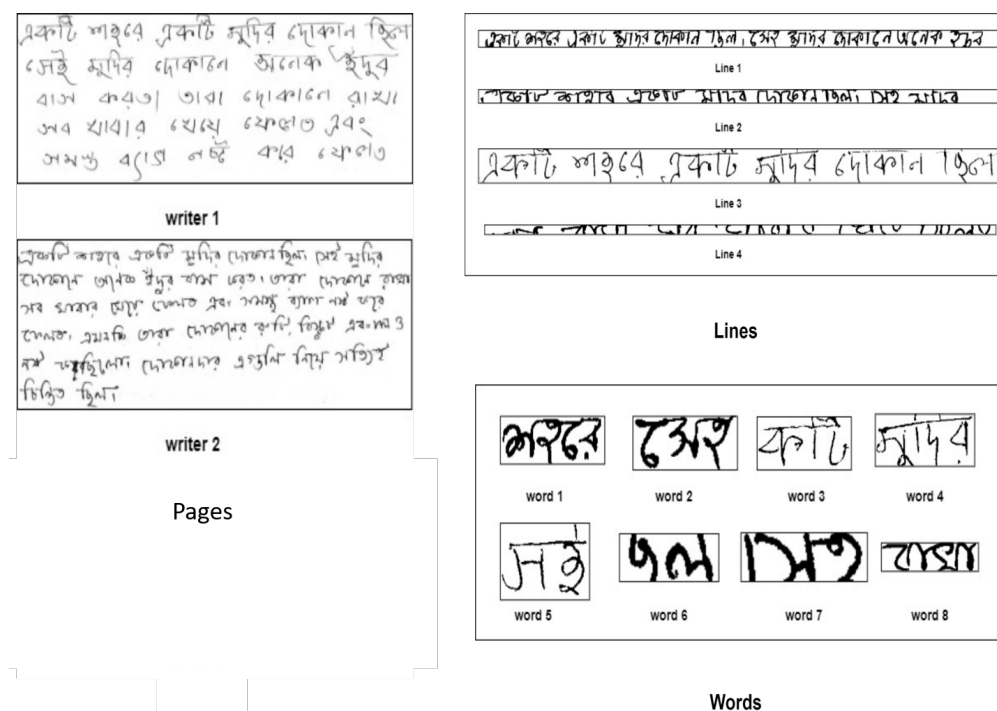 একটি শহরে একটি মুদির দোকান ছিল
সেই মুদির দোকানে অনেক ইঁদুর
বাস করতো তারা দোকানে রাখা
সব খাবার খেয়ে ফেলত এবং
সমস্ত ব্যাগ নষ্ট করে ফেলত
writer 1
একটি শহরে একটি মুদির দোকান ছিল। সেই মুদির
দোকানে অনেক ইঁদুর বাস করত। তারা দোকানে রাখা
সব খাবার খেয়ে ফেলত এবং সমস্ত ব্যাগ নষ্ট করে
ফেলত। এমনকি তারা দোকানের রুটি, বিস্কুট এবং ফল ও
নষ্ট করেছিলো। দোকানদার এগুলি নিয়ে সত্যিই
চিন্তিত ছিল।
writer 2
Pages
একটি শহরে একটি মুদির দোকান ছিল। সেই মুদির দোকানে অনেক ইঁদুর
Line 1
একটি শহরে একটি মুদির দোকান ছিল। সেই মুদির
Line 2
একটি শহরে একটি মুদির দোকান ছিল
Line 3
Line 4
Lines
শহরে
সেই
কটি
মুদির
word 1
word 2
word 3
word 4
সই
রাখা
word 5
word 6
word 7
word 8
Words